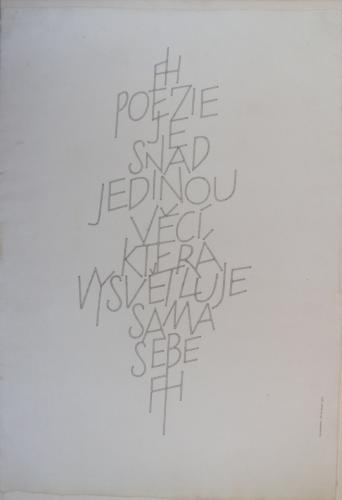 FH
POEZIE
JE
SNAD
JEDINOU
VĚCÍ,
KTERÁ
VYSVĚTLUJE
SAMA
SEBE
FH